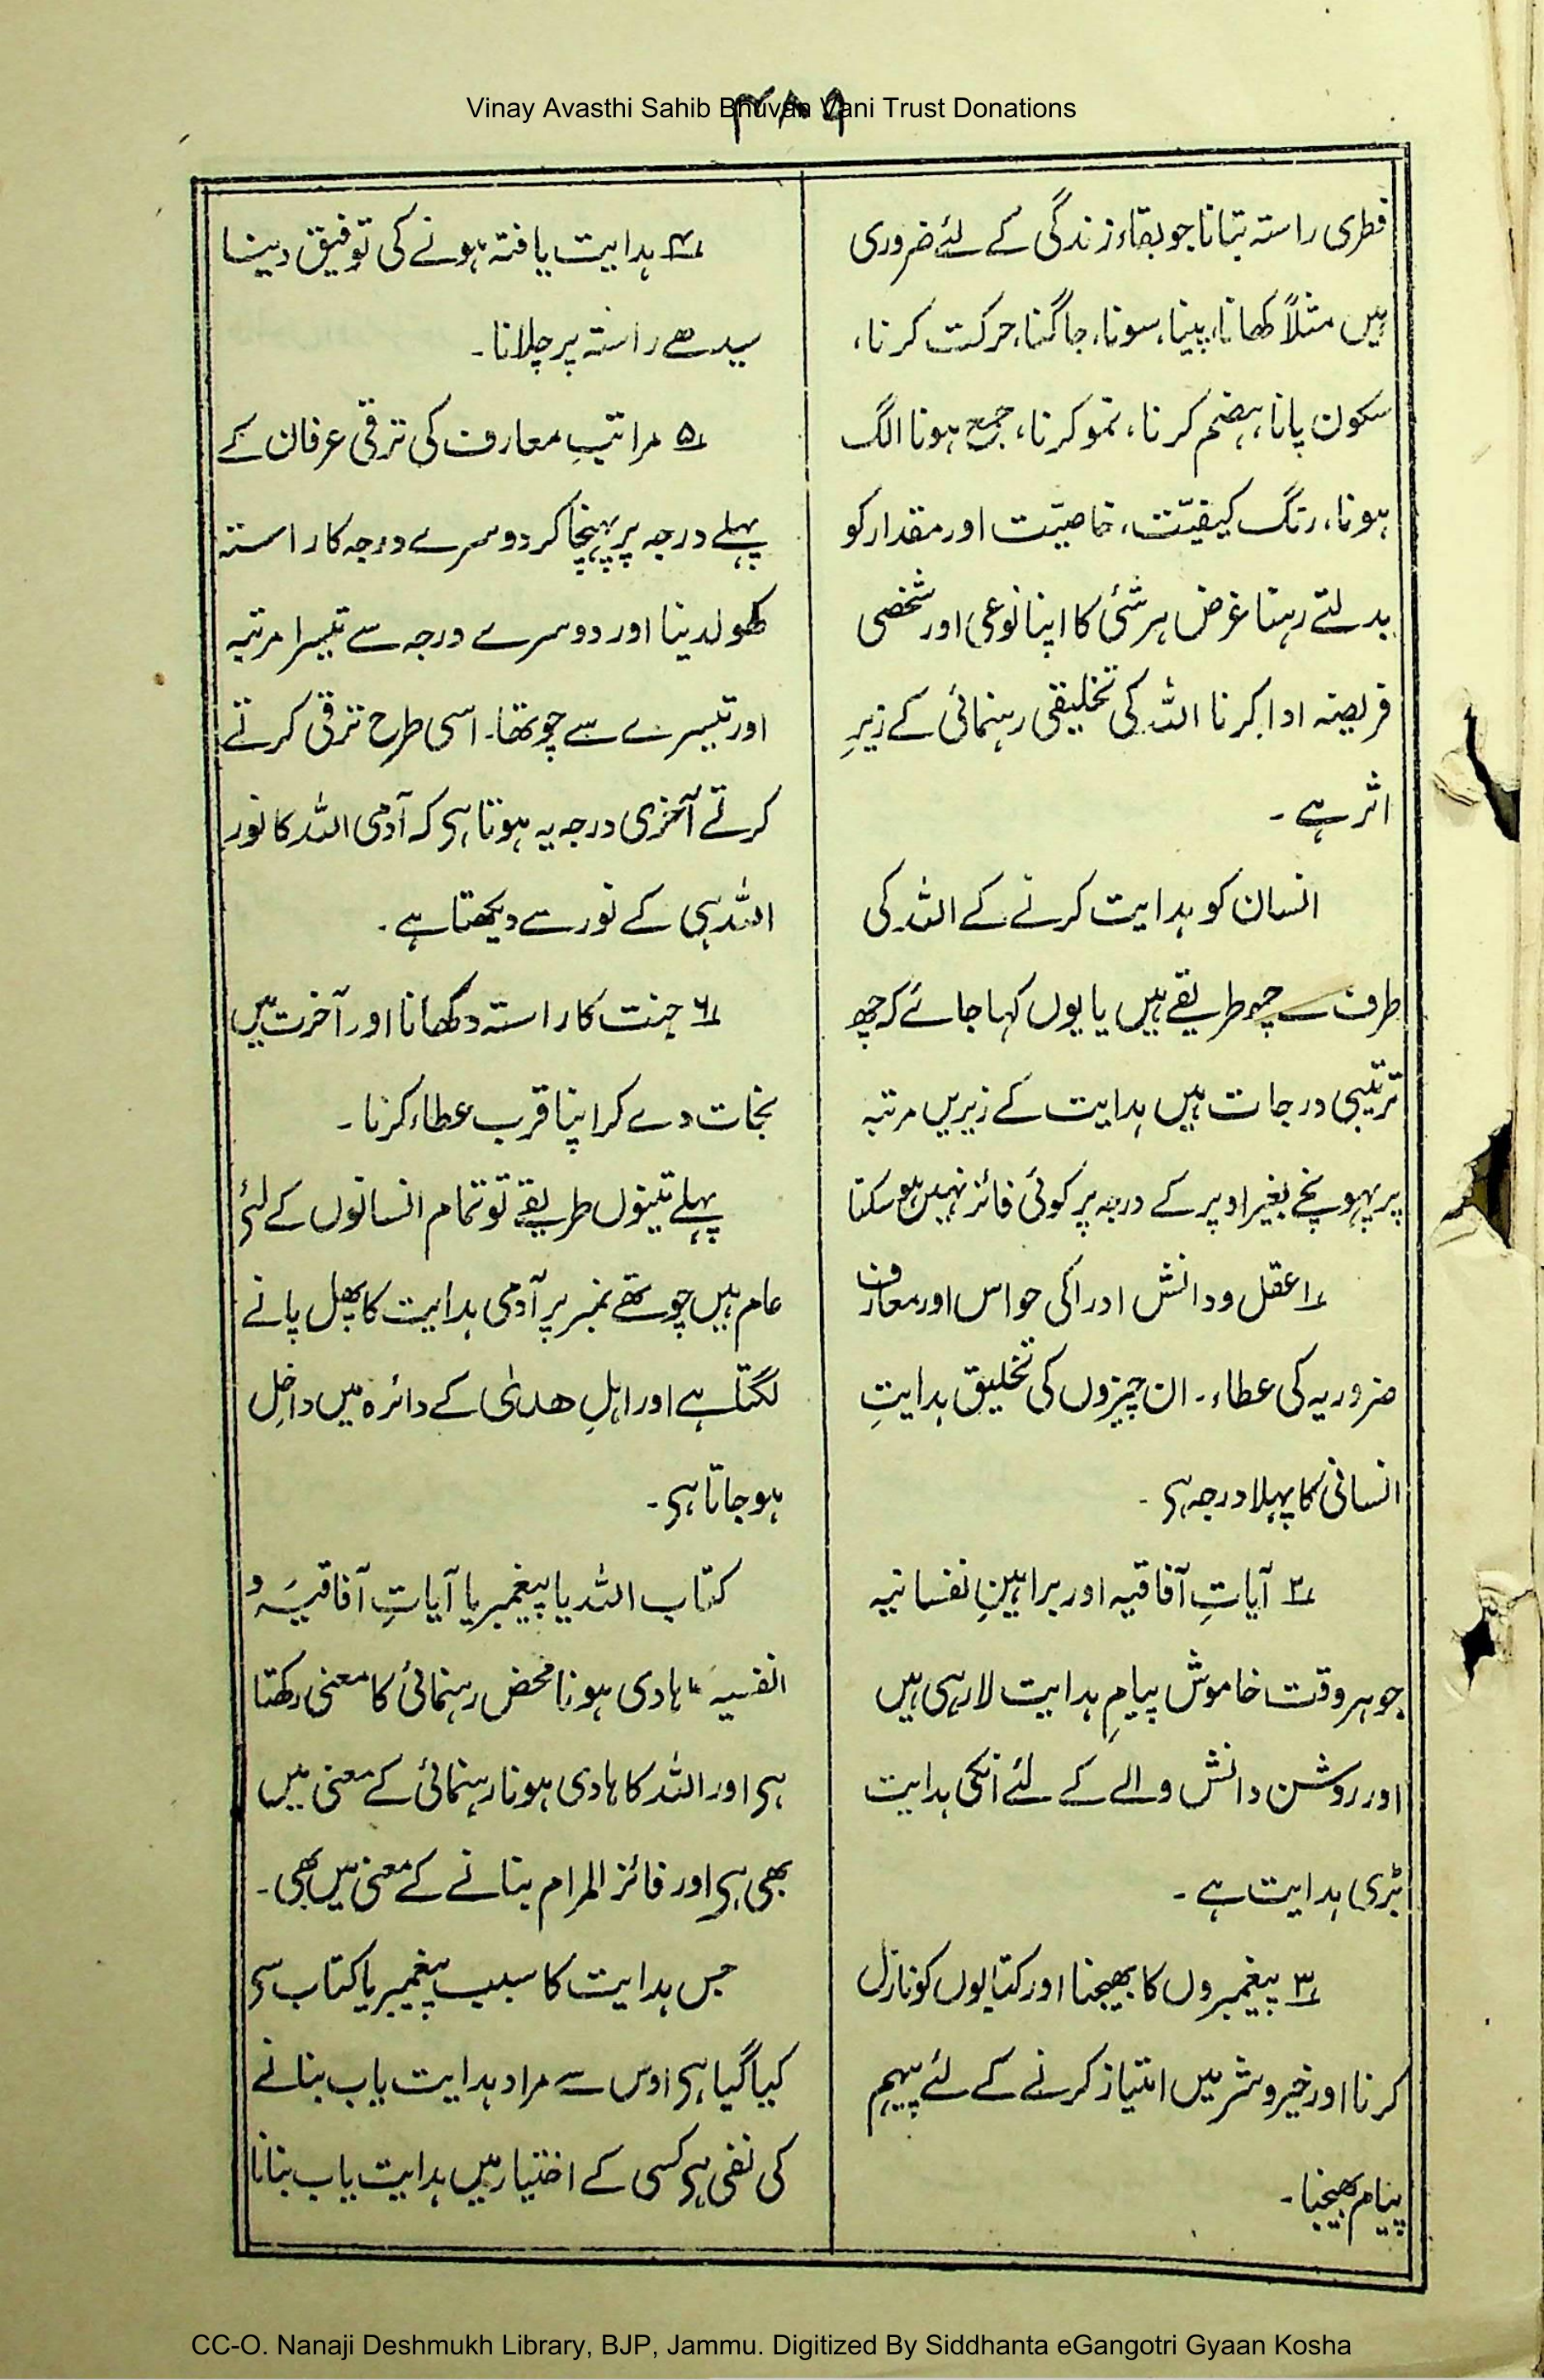 Vinay Avasthi Sahib Bhuvan Vani Trust Donations
۳۸۹
فطری راستہ بتانا جو بقاء زندگی کے لئے ضروری
ہیں مثلاً کھانا، پینا، سونا، جاگنا، حرکت کرنا،
سکون پانا، ہضم کرنا، نمو کرنا، جمع ہونا الگ
ہونا، رنگ کیفیّت، خاصیّت اور مقدار کو
بدلتے رہنا غرض ہر شئی کا اپنا نوعی اور شخصی
فریضہ ادا کرنا اللہ کی تخلیقی رہنمائی کے زیرِ
اثر ہے ۔
انسان کو ہدایت کرنے کے اللہ کی
طرف سے چھ طریقے ہیں یا یوں کہا جائے کہ چھ
ترتیبی درجات ہیں ہدایت کے زیریں مرتبہ
پر پہونچے بغیر اوپر کے درجہ پر کوئی فائز نہیں ہو سکتا
؁۱ عقل و دانش ادراکی حواس اور معارف
ضروریہ کی عطاء۔ ان چیزوں کی تخلیق ہدایتِ
انسانی کا پہلا درجہ ہی ۔
؁۲ آیاتِ آفاقیہ اور براہینِ نفسانیہ
جو ہر وقت خاموش پیامِ ہدایت لا رہی ہیں
اور روشن دانش والے کے لئے انکی ہدایت
بڑی ہدایت ہے ۔
؁۳ پیغمبروں کا بھیجنا اور کتابوں کو نازل
کرنا اور خیر و شر میں امتیاز کرنے کے لئے پیہم
پیام بھیجنا۔
؁۴ ہدایت یافتہ ہونے کی توفیق دینا
سیدھے راستہ پر چلانا۔
؁۵ مراتبِ معارف کی ترقی عرفان کے
پہلے درجہ پر پہنچا کر دوسرے درجہ کا راستہ
کھولدینا اور دوسرے درجہ سے تیسرا مرتبہ
اور تیسرے سے چوتھا۔ اسی طرح ترقی کرتے
کرتے آخری درجہ یہ ہوتا ہی کہ آدمی اللہ کا نور
اللہ ہی کے نور سے دیکھتا ہے ۔
؁۶ جنت کا راستہ دکھانا اور آخرت میں
نجات دے کر اپنا قرب عطاء کرنا ۔
پہلے تینوں طریقے تو تمام انسانوں کے لئے
عام ہیں چوتھے نمبر پر آدمی ہدایت کا پھل پانے
لگتا ہے اور اہلِ ھدیٰ کے دائرہ میں داخل
ہو جاتا ہی ۔
کتاب اللہ یا پیغمبر یا آیاتِ آفاقیہ و
انفسیہ کا ہادی ہونا محض رہنمائی کا معنی رکھتا
ہی اور اللہ کا ہادی ہونا رہنمائی کے معنی میں
بھی ہی اور فائز المرام بنانے کے معنی میں بھی ۔
جس ہدایت کا سبب پیغمبر یا کتاب سی
کیا گیا ہی اوس سے مراد ہدایت یاب بنانے
کی نفی ہی کسی کے اختیار میں ہدایت یاب بنانا
CC-O. Nanaji Deshmukh Library, BJP, Jammu. Digitized By Siddhanta eGangotri Gyaan Kosha